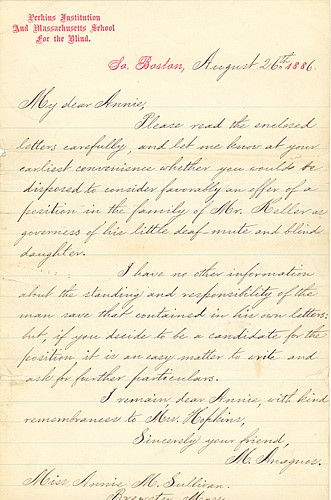 Perkins Institution
And Massachusetts School
For the Blind.
So. Boston, August 26th. 1886.
My dear Annie,
Please read the enclosed
letters carefully, and let me know at your
earliest convenience whether you would be
disposed to consider favorably an offer of a
position in the family of Mr. Keller as
governess of his little deaf mute and blind
daughter.
I have no other information
about the standing and responsibility of the
man save that contained in his own letters:
but, if you decide to be a candidate for the
position, it is an easy matter to write and
ask for further particulars.
I remain dear Annie, with kind
remembrances to Mrs. Hopkins,
Sincerely your friend,
M. Anagnos.
Miss Annie M. Sullivan.
Brewster, Mass.